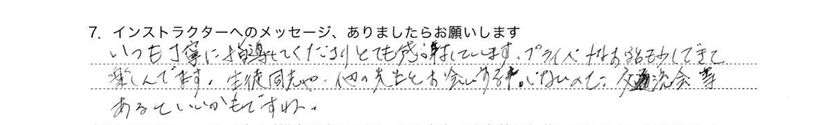 7. インストラクターへのメッセージ、ありましたらお願いします
いつも丁寧に指導してくださりとても感謝しています。プライベートなお話もできて
楽しんでます。生徒同志や、他の先生とお会いする事。ないので、交流会等
あるといいかもですね。